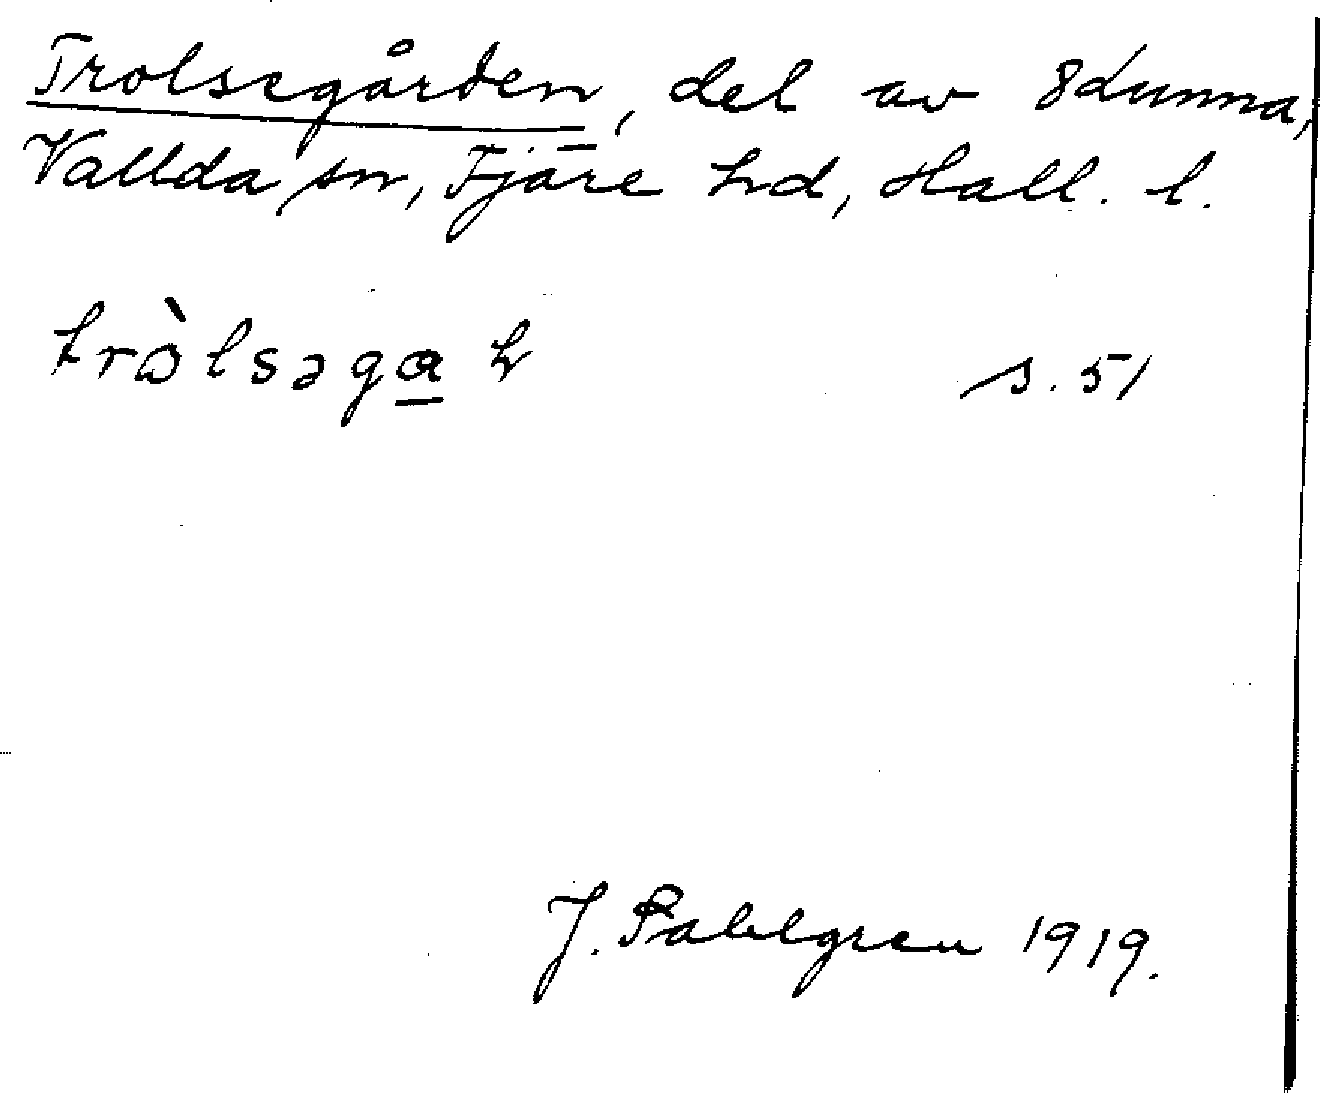 Trolsegården, del av 8 Lunna,
Vallda sn, Fjäre hd, Hall. l.
trɔ̀lsəga̲ h s. 51
J. Sahlgren 1919.